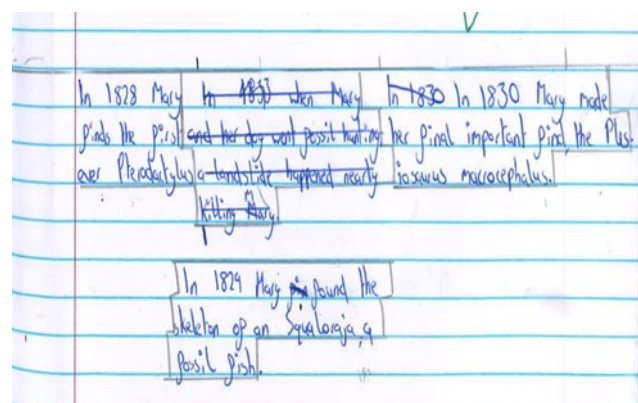 In 1828 Mary
finds the first
ever Pterodactylus
In 1833 when Mary
and her dog went fossil hunting
a landslide happened nearly
killing Mary.
In 1830 In 1830 Mary made
her final important find, the Ples-
iosaurus macrocephalus.
In 1829 Mary found the
skeleton of an Squaloraja, a
fossil fish.